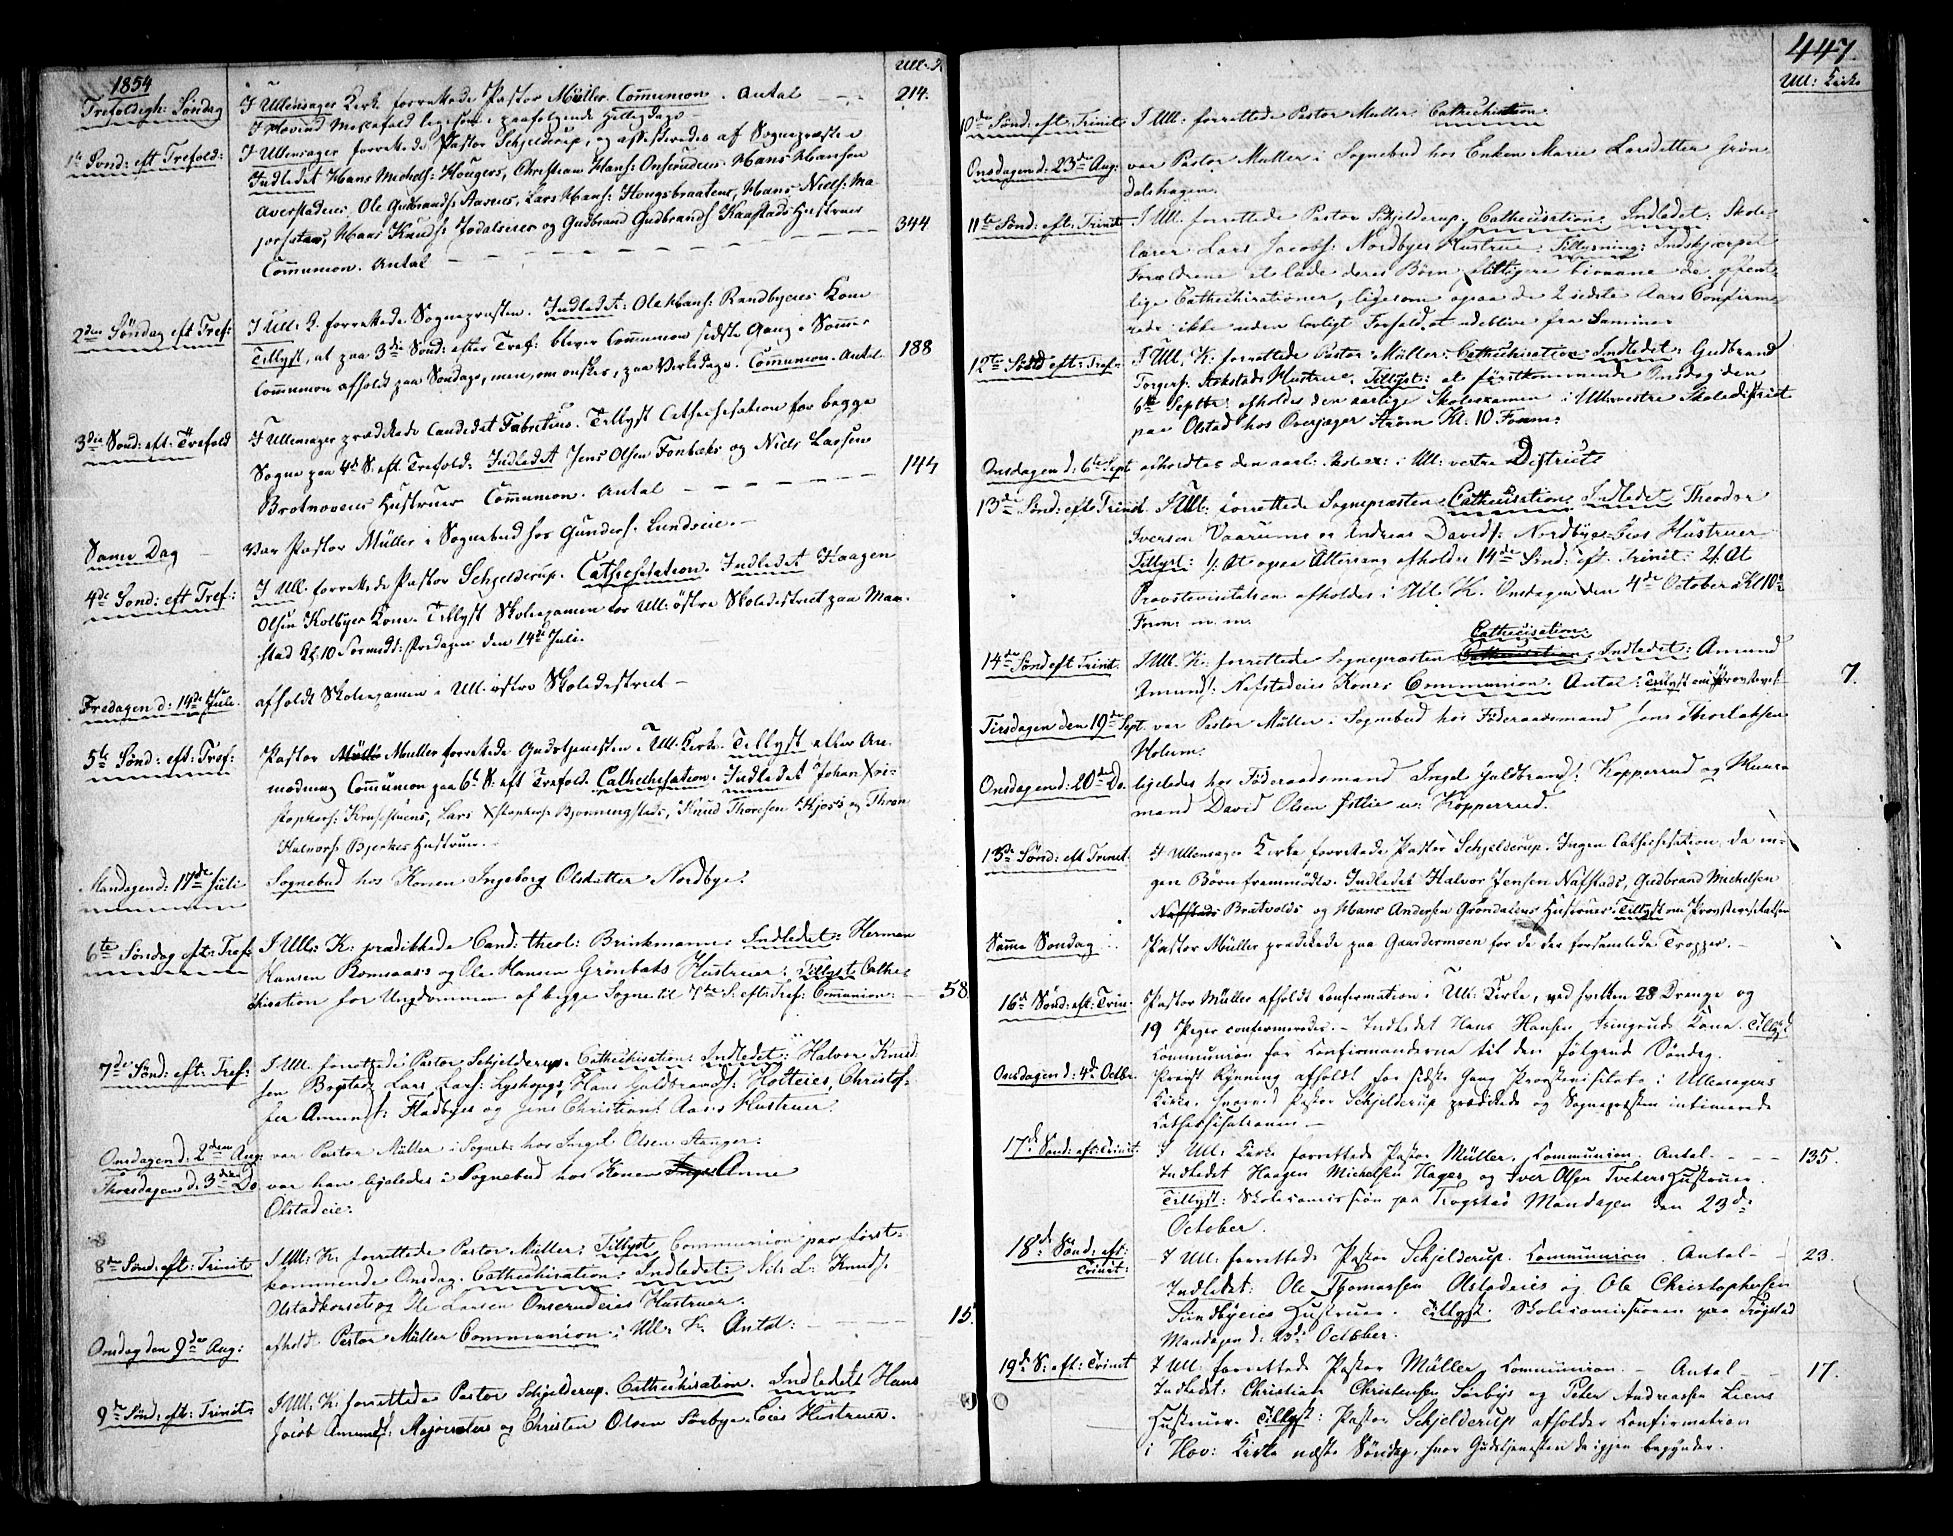 1854
Ull: K
Trefoldigh: Søndag
I Ullensager Kirke forrettede Pastor Müller. Communion. Antal
214.
I Hovind Messefald ligesom i paafølgende Helligdage
1te Sønd: eft Trefold:
I Ullensager forrettede Pastor Schjelderup, og assisteredes af Sognepræsten
Indledet Hans Michels: Hougers, Christian Hans: Onserudeies Hans Hansen
Averstadeies, Ole Gulbrands: Aaseies, Lars Hans: Hongsbraatens, Hans Niels: Ma-
jorsæters, Hans Knuds: Jodalseies og Gudbrand Gudbrands Kaastads Hustruer
344
Communion. Antal
2den Søndag eft Tref:
I Ull: K. forrettede Sognepræsten. Indledet: Ole Hans: Randbyeies Kone
Tillyst, at paa 3die Sønd: efter Tref: bliver Communion sidste Gang i Sommer
Communion afholdt paa Søndage, men, om ønskes, paa Verkedage. Communion. Antal
188
3die Sønd: eft: Trefold
I Ullensager prædikede Candidat Fabritius. Tillyst Catechesation for begge
Sogne paa 4de S. eft. Trefold: Indledet Jens Olsen Fonbæks og Niels Larsens
Brotnoveies Hustruer Communion. Antal
144
Samme Dag
Var Pastor Müller i Sognebud hos Gunders. Lundseie.
4de Sønd: eft Tref:
I Ull. forrettede Pastor Schjelderup. Cathechisation. Indledet Haagen
Olsen Kolbyes Kone. Tillyst Skoleexamen for Ull: østre Skoledistrict paa Maa-
stad Kl. 10 Formidd: Fredagen den 14de Juli.
Fredagen d: 14de Juli.
afholdt Skoleexamen i Ull. østre Skoledistrict
5te Sønd: eft: Tref:
Pastor Muller forrettede Gudstjenesten i Ull. Kirke. Tillyst efter An-
modning Communion paa 6te S. eft Trefold. Cathechesation. Indledet Johan Xri-
stophers: Kruses, Lars Xstophers: Bjonningstads, Knud Thoresen Hjoss og Thron
Halvors: Bjerkes Hustruer.
Mandagen d: 17de Juli
Sognebud hos Konen Ingeborg Olsdatter Nordbye.
6te Søndag eft: Tref:
I Ull: K: prædikkede Cand: theol: Brinkmann: Indledet: Herman
Hansen Romsaas og Ole Hansen Grønbaks Hustruer: Tillyst Cathe-
chisation for Ungdommen af begge Sogne til 7de S: eft: Tref: Communion:
58
7de Sønd: eft: Tref:
I Ull. forrettede Pastor Schjelderup. Cathechisation: Indledet: Halvor Knud-
sen Bogstad, Lars Lars: Lyshougs, Hans Guldbrands: Holteies, Christof-
fer Amunds: Fladbyes og Jens Christians: Aas's Hustruer.
Onsdagen d: 2den Aug:
var Pastor Müller i Sogneb: hos Ingel Olsen Stanger:
Thorsdagen d: 3die Do
var han ligeledes i Sognebud hos Konen Anne
Olstadeie:
8de Sønd: eft: Trinit:
I Ull: K: forrettede Pastor Müller; Tillyst Communion paa først-
kommende Onsdag. Cathechisation: Indledet: Nils L: Knuds
Olstadkorset og Ole Larsen Onserudeies Hustruer.
Onsdag den 9de Aug:
afholdt Pastor Müller Communion i Ull: K: Antal:
15.
9de Sønd: eft: Trinit:
I Ull: K: forrettede Pastor Schjelderup. Cathechisation. Indledet: Hans
Jacob Amunds: Majorsæters og Christen Olsen Sørbye-Eies Hustruer.
447.
Ull: Kirke
10de Sønd: eft. Trinit
I Ull: forrettede Pastor Muller. Cathechisation.
Onsdagen d: 23de Aug:
var Pastor Muller i Sognebud hos Enken Marie Larsdatter Grøn
dalshagen.
11te Sønd: eft. Trinit
I Ull. forrettede Pastor Schjelderup. Cathechisation. Indledet: Skole-
lærer Lars Jacobs: Nordbyes Hustrue: Tillysning: Indskjærpet
Forældrene at lade deres Børn flittigere bivaane de offent-
lige Cathechisationer, ligesom ogsaa de 2 sidste Aars Confirme-
rede ikke uden lovligt Forfald at udeblive fra Samme.
12te Sønd eft: Tref:
I Ull. K: forrettede Pastor Müller: Cathechisation: Indledet: Gudbrand
Torgers: Askstads Hustrue. Tillyst: at førstkommende Onsdag den
6te Septbr: afholdes den aarlige Skoleexamen i Ull: vestre Skoledistrict
paa Olstad hos Overjæger Strøm Kl. 10 Form:
Onsdagen d: 6te Sept
afholdtes den aarl: Skoleex: i Ull: vestre Districte
13de Sønd: eft: Trinit.
I Ull: forrettede Sognepræsten Cathechisation. Indledet Theodor
Iversen Vaarums og Andreas Davids: Nordbye-Eies Hustruer
Tillyst: 1/. At ogsaa Altergang afholdes 14de Sønd: eft: Trinit: 2/. At
Provstevisitatsen afholdes i Ull. K. Onsdagen den 4de October Kl 10
Form: m. m.
14de Sønd eft Trinit:
Cathechisation:
I Ull. K: forrettede Sognepræsten Indledet: Amund
Amunds: Nafstadeies Kones Communion. Antal: Tillyst om Provstevis:
7.
Tirsdagen den 19de Sept
var Pastor Müller i Sognebud hos Föderaadsmand Jens Thorlaksen
Holum:
Onsdagen d: 20de Do.
ligeledes hos Föderaadsmand Ingel Guldbrands: Kopperud og Huus-
mand David Olsen Østlie u: Kopperud.
15de Sønd: eft Trinit:
I Ullensager Kirke forrettede Pastor Schjelderup. Ingen Cathechesation, da in-
gen Børn fremmødte. Indledet Halvor Jensen Nafstads, Gudbrand Michelsen
Bratvolds og Hans Andersen Grøndalens Hustruer. Tillyst om Provstevisitatsen
Samme Søndag
Pastor Müller prædikede paa Gardermoen for de der forsamlede Tropper.
16de Sønd: eft: Trin:
Pastor Müller afholdt Confirmation i Ull: Kirke, ved hvilken 28 Drenge og
19 Piger confirmeredes. – Indledet Hans Hansen Tveruds Kone. Tillyst
Communion for Confirmanderne til den følgende Søndag.
Onsdagen d: 4de Octbr.
Provst Rynning afholdt for sidste Gang Provstevisitats i Ullensagers
Kirke, hvorved Pastor Schjelderup prædikede og Sognepræsten intimerede
Cathechisationen. –
17de Sønd: eft. Trinit:
I Ull: Kirke forrettede Pastor Müller. Communion. Antal.
135.
Indledet Haagen Michelsen Hagas og Iver Olsen Tveters Hustruer.
Tillyst: Skolecomission paa Trøgstad Mandagen den 23de
October.
18de Sønd: eft: Trinit:
I Ull: forrettede Pastor Schjelderup. Communion. Antal
23.
Indledet: Ole Thomassen Olstadeies og Ole Christophersen
Sundbyeies Hustruer. Tillyst. Skolecomissionen paa Trøgstad
Mandagen d: 23de October.
19de S: eft: Trinit
I Ull: forrettede Pastor Müller Communion. – Antal
17.
Indledet: Christian Christensen Sørbys og Peter Andreassen Liens
Hustruer. Tillyst: Pastor Schjelderup afholder Confirmation
i Hov: Kirke næste Søndag, hvor Gudstjenesten da igjen begynder.